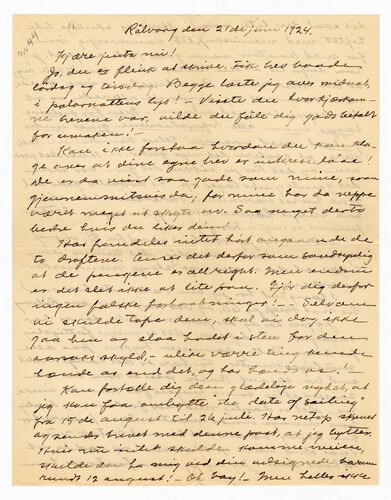 no 44
Rålvaag den 21de juni 1924.
Kjære jenta mi!
Jo, du er flink at skrive. Fik brev baade
lørdag og tirsdag. Begge læste jeg aves midnat,
i polarnattens lys! - Visste du hvor kjærkom-
ne brevene var, vilde du føle dig godt betalt
for umaken! -
Kan ikke forstaa hvordan du kan kla-
ge over at dine egne brev er interesseløse!
De er da visst saa gode som mine, som
gjennemsnitsvis da, for mine har da neppe
været meget at skryte av. Saa meget desto
bedre hvis du liker dem!
Har fremdeles intet hørt angaaende de
to drafter. Anser det derfor som
at de pengene er allright. Men endnu
er det slet ikke at lite paa. Gjør dig derfor
ingen falske forhaabninger! - Selv om
vi skulde tape dem, skal vi dog ikke
gaa hen og slaa hodet i sten for den
aarsaks skyld, - ulike værre ting hende
baade os end det, og har hændt os! -
Kan fortælle dig den glædelige nyhet, at
jeg kan faa ombyttet the date of sailing
fra 15de august til 26 juli. Har netop skrevet
og sendt brevet med denne post, at jeg bytter.
Hvis nu intet skulde komme iveien,
skulde du ha mig ved din
rundt 12 august! - Oh boy! - Men heller ikke